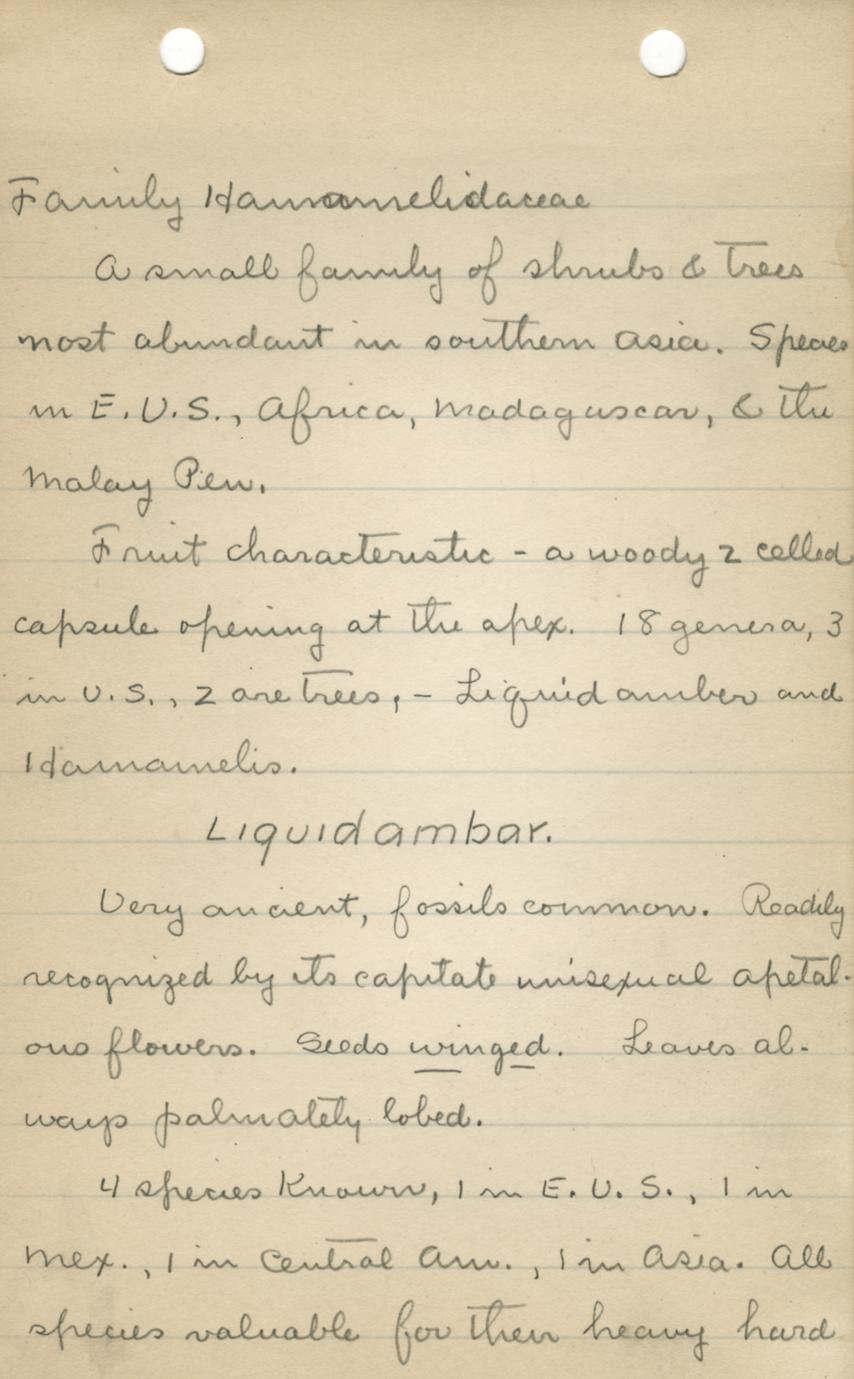 Family Hamamelidaceae
A small family of shrubs & trees
most abundant in southern Asia. Species
in E.U.S., Africa, Madagascar, & the
Malay Pen.
Fruit characteristic - a woody 2 celled
capsule opening at the apex. 18 genera, 3
in U.S., 2 are trees, - Liquidamber and
Hamamelis.
Liquidambar.
Very ancient, fossils common. Readily
recognized by its capitate unisexual apetal-
ous flowers. Seeds winged. Leaves al-
ways palmately lobed.
4 species known, 1 in E.U.S., 1 in
Mex., 1 in Central Am., 1 in Asia. All
species valuable for their heavy hard